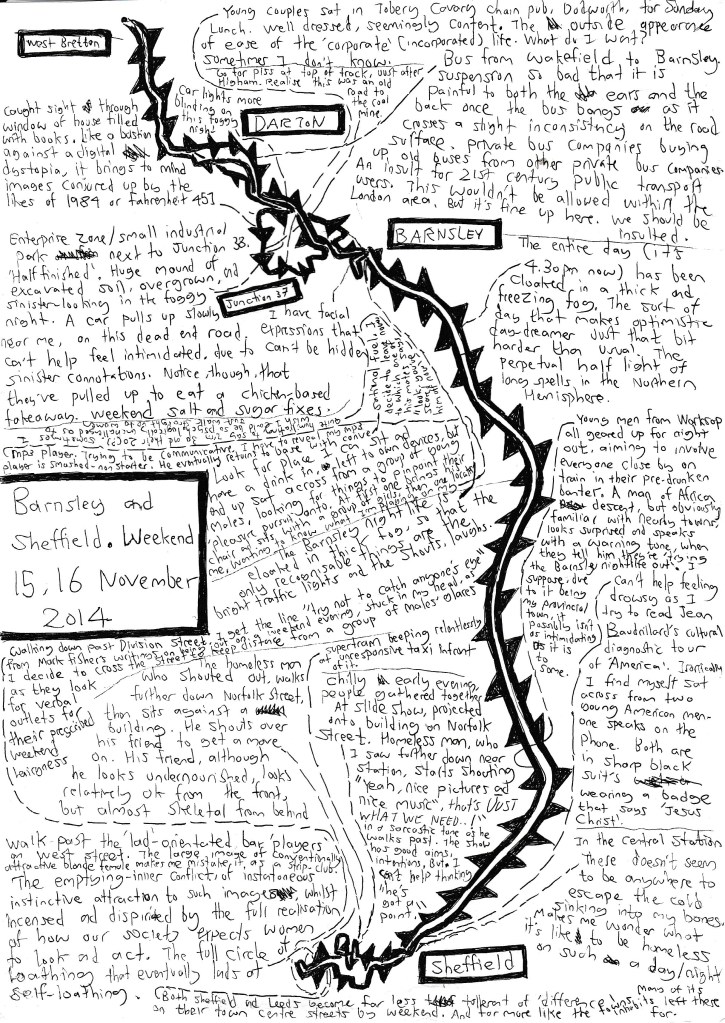 West Bretton
Young couples sat in Toberry Covary chain pub, Dodworth, for Sunday
Lunch. well dressed, seemingly content. The outside appearance
of ease of the 'corporate' (incorporated) life. What do I want?
Sometimes I don't know.
Go for piss at top of track, just after
Higham. Realise this was an old
road to
the coal
mine.
Car lights more
blinding on
this foggy
night
DARTON
Bus from Wakefield to Barnsley.
suspension so bad that it is
Painful to both the ears and the
back once the bus bangs as it
crosses a slight inconsistency on the road
surface. private bus companies buying
up old buses from other private bus companies.
An insult for 21st century public transport
users. This wouldn't be allowed within the
London area. But it's fine up here. We should be
insulted.
Caught sight of through
window of house filled
with books. Like a bastion
against a digital
dystopia, it brings to mind
images conjured up by the
likes of 1984 or fahrenheit 451
BARNSLEY
Enterprise zone/small industrial
park next to Junction 38.
'Half finished'. Huge mound of
excavated soil, overgrown, and
sinister-looking in the foggy
night. A car pulls up slowly
near me, on this dead end road,
can't help feel intimidated, due to
sinister connotations. Notice though, that
they've pulled up to eat a chicken-based
takeaway. weekend salt and sugar fixes.
Junction 37
I have facial
expressions that
can't be hidden
The entire day (it's
4.30pm now) has been
cloaked in a thick and
freezing fog. The sort of
day that makes optimistic
day-dreamer just that bit
harder than usual. The
perpetual half light of
long spells, in the Northern
Hemisphere.
decide to leave
to which one of
his mates says
"look, you've
scared
him off"
mp3 player. Trying to be communicative, I have to reveal my mp3
player is smashed - non starter. He eventually returns to base with convo
Look for place I can sit and
have a drink in, left to own devices, but
end up sat across from a group of young
males, looking for things to pinpoint their
pleasure pursuit onto. The first one brings his
chair and sits with a group of girls. Then one looks at
me, wanting to know what I'm plotting on my
The Barnsley night life is
cloaked in thick fog, so that the
only recognisable things are the
bright traffic lights and the shouts, laughs.
Barnsley and
Sheffield. Weekend
15, 16 November
2014
Young men from Worksop
all geared up for night
out, aiming to involve
everyone close by on
train in their pre-drunken
banter. A man of African
descent, but obviously
familiar with nearby towns,
looks surprised and speaks
with a warning tone, when
they tell him they're trying
the Barnsley nightlife out. I
suppose, due
to it being
my provincial
town, it
possibly isn't
as intimidating
as it is
to
some.
Can't help feeling
drowsy as I
try to read Jean
Baudrillard's cultural
diagnostic tour
of 'America'. Ironically
I find myself sat
across from two
young American men -
one speaks on the
Phone. Both are
in sharp black
suit's
wearing a badge
that says 'Jesus
Christ'.
Walking down past Division Street, I get the line "try not to catch anyone's eye"
from Mark Fisher's writings on being out on a weekend evening, stuck in my head, as
I decide to cross the street to keep distance from a group of males' glares
as they look
for verbal
outlets for
their prescribed
weekend
lairyness
The homeless man
who shouted out, walks
further down Norfolk Street,
then sits against a
building. He shouts over
his friend to get a move
on. His friend, although
he looks undernourished, looks
relatively ok from the front,
but almost skeletal from behind
supertram beeping relentlessly
at unresponsive taxi infront
of it.
Chilly early evening,
people gathered together
At slide show, projected
onto building on Norfolk
Street. Homeless man, who
I saw further down near
station, starts shouting
"Yeah, nice pictures and
nice music", that's JUST
WHAT WE NEED..!"
in a sarcastic tone as he
walks past. The show
has good aims,
intentions, But I
can't help thinking
"he's
got a
point".
walk past the 'lad-orientated bar 'players'
on west street. The large image of conventionally
attractive blonde female makes me mistake it as a strip-club.
The emptying-inner conflict, of instantaneous
instinctive attraction to such images, whilst
incensed and dispirited by the full realisation
of how our society expects women
to look and act. The full circle of
loathing that eventually lands at
self-loathing.
In the central Station
There doesn't seem
to be anywhere to
escape the cold
sinking into my bones.
Makes me wonder what
it's like to be homeless
on such a day/night
Sheffield
(Both sheffield and Leeds become far less tollerant of 'difference'
on their town centre streets by weekend. And far more like the towns
many of its
inhabitants left these
for.